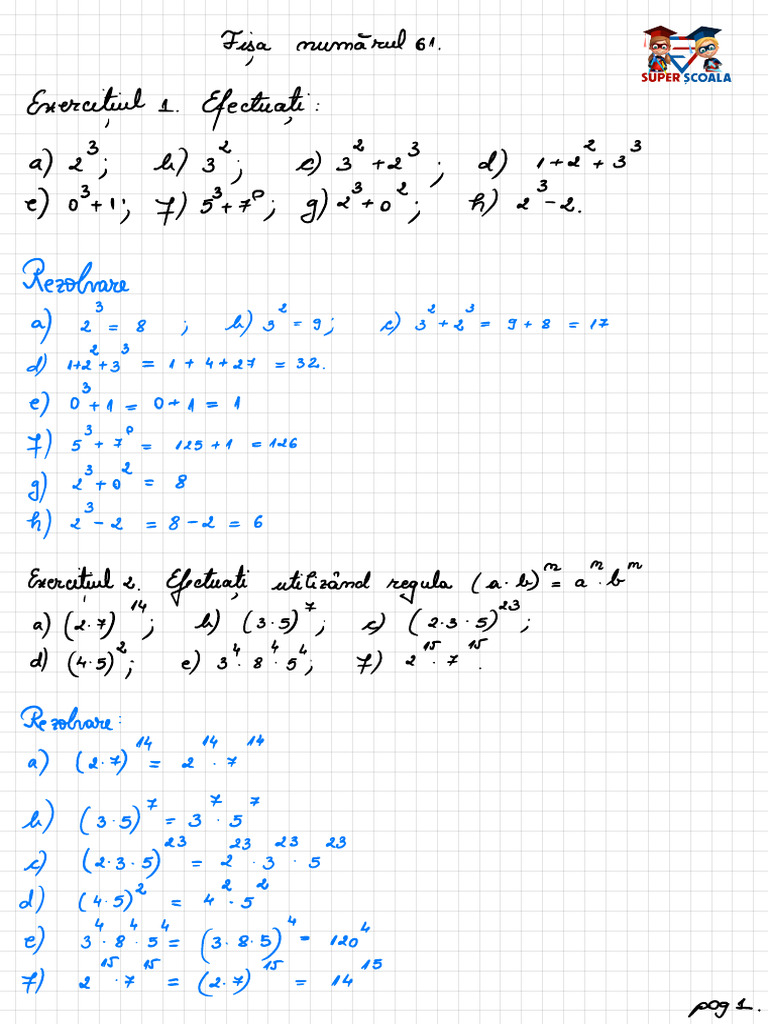 Fișa numărul 61.
SUPER ȘCOALA
Exercițiul 1. Efectuați:
a) 2³; b) 3²; c) 3² + 2³; d) 1+2² + 3³
e) 0³+1; f) 5³+7⁰; g) 2³+0²; h) 2³-2.
Rezolvare
a) 2³ = 8 ; b) 3² = 9; c) 3² + 2³ = 9 + 8 = 17
d) 1+2²+3³ = 1 + 4 + 27 = 32.
e) 0³+1 = 0+1 = 1
f) 5³ + 7⁰ = 125 + 1 = 126
g) 2³+0² = 8
h) 2³-2 = 8-2 = 6
Exercițiul 2. Efectuați utilizând regula (a·b)ⁿ = aⁿ·bⁿ
a) (2·7)¹⁴; b) (3·5)⁷; c) (2·3·5)²³;
d) (4·5)²; e) 3⁴·8⁴·5⁴; f) 2¹⁵·7¹⁵.
Rezolvare:
a) (2·7)¹⁴ = 2¹⁴·7¹⁴
b) (3·5)⁷ = 3⁷·5⁷
c) (2·3·5)²³ = 2²³·3²³·5²³
d) (4·5)² = 4²·5²
e) 3⁴·8⁴·5⁴ = (3·8·5)⁴ = 120⁴
f) 2¹⁵·7¹⁵ = (2·7)¹⁵ = 14¹⁵
pag 1.